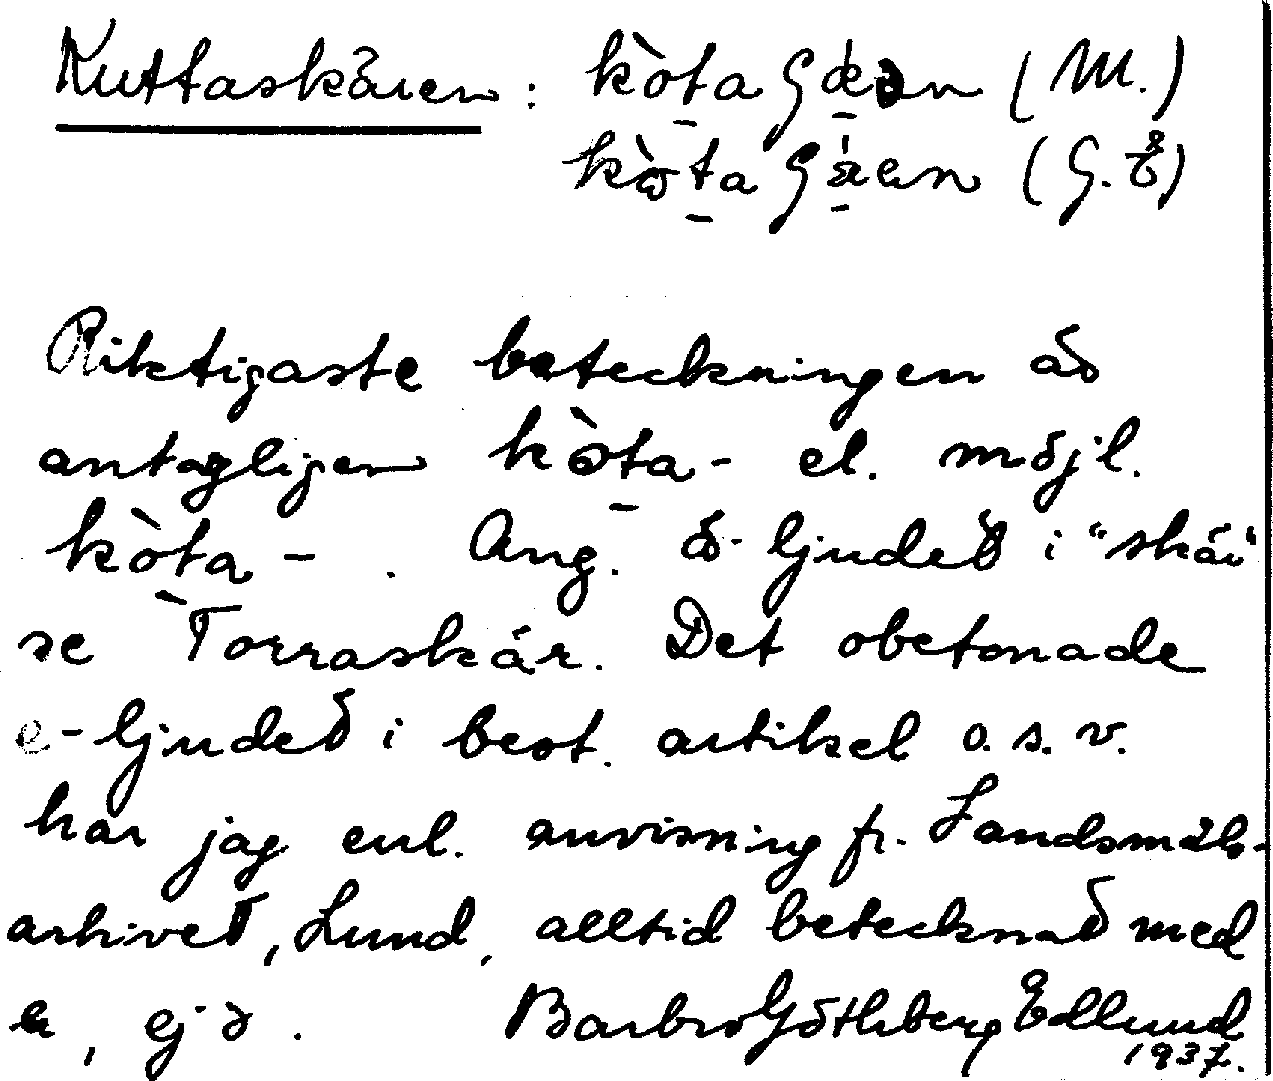 Kuttaskären : kòta ʃǽən (M.)
kòta ʃǽen (G.E)
Riktigaste beteckningen är
antagligen kòta- el. möjl.
kòta - . Ang. ä-ljudet i "skär"
se Torraskär. Det obetonade
e-ljudet i best. artikel o.s.v.
har jag enl. anvisning fr. Landsmåls-
arkivet, Lund, alltid betecknat med
e, ej ə. Barbro Göthberg Edlund
1937.